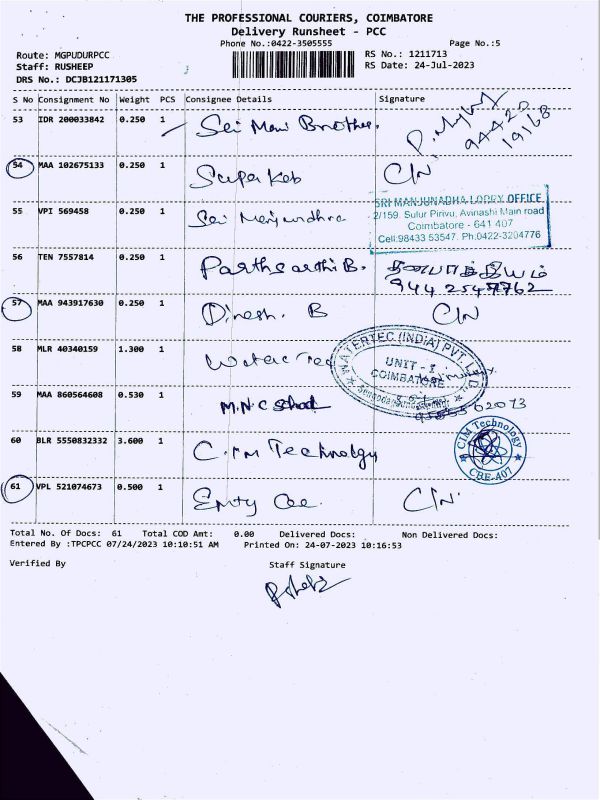 THE PROFESSIONAL COURIERS, COIMBATORE
Delivery Runsheet - PCC
Phone No.:0422-3505555 Page No.:5
Route: MGPUDURPCC RS No.: 1211713
Staff: RUSHEEP RS Date: 24-Jul-2023
DRS No.: DCJB121171305
S No Consignment No Weight PCS Consignee Details Signature
53 IDR 200033842 0.250 1 Sri Mani Brothers. 94420
19168
54 MAA 102675133 0.250 1 C/N
SRI MANJUNADHA LORRY OFFICE
2/159, Sulur Pirivu, Avinashi Main road
Coimbatore - 641 407
Cell:98433 53547, Ph.0422-3204776
55 VPI 569458 0.250 1 Sri Manjundhra
56 TEN 7557814 0.250 1 Parthsarthi B.
57 MAA 943917630 0.250 1 Dinesh. B C/N
58 MLR 40340159 1.300 1 Watertec
MATERTEC (INDIA) PVT. LTD.
UNIT - I
COIMBATORE
59 MAA 860564608 0.530 1 M.N.C School
60 BLR 5550832332 3.600 1 C.I.M Technolgy
CIM Technology
CBE-407
61 VPL 521074673 0.500 1 C/N.
Total No. Of Docs: 61 Total COD Amt: 0.00 Delivered Docs: Non Delivered Docs:
Entered By :TPCPCC 07/24/2023 10:10:51 AM Printed On: 24-07-2023 10:16:53
Verified By Staff Signature